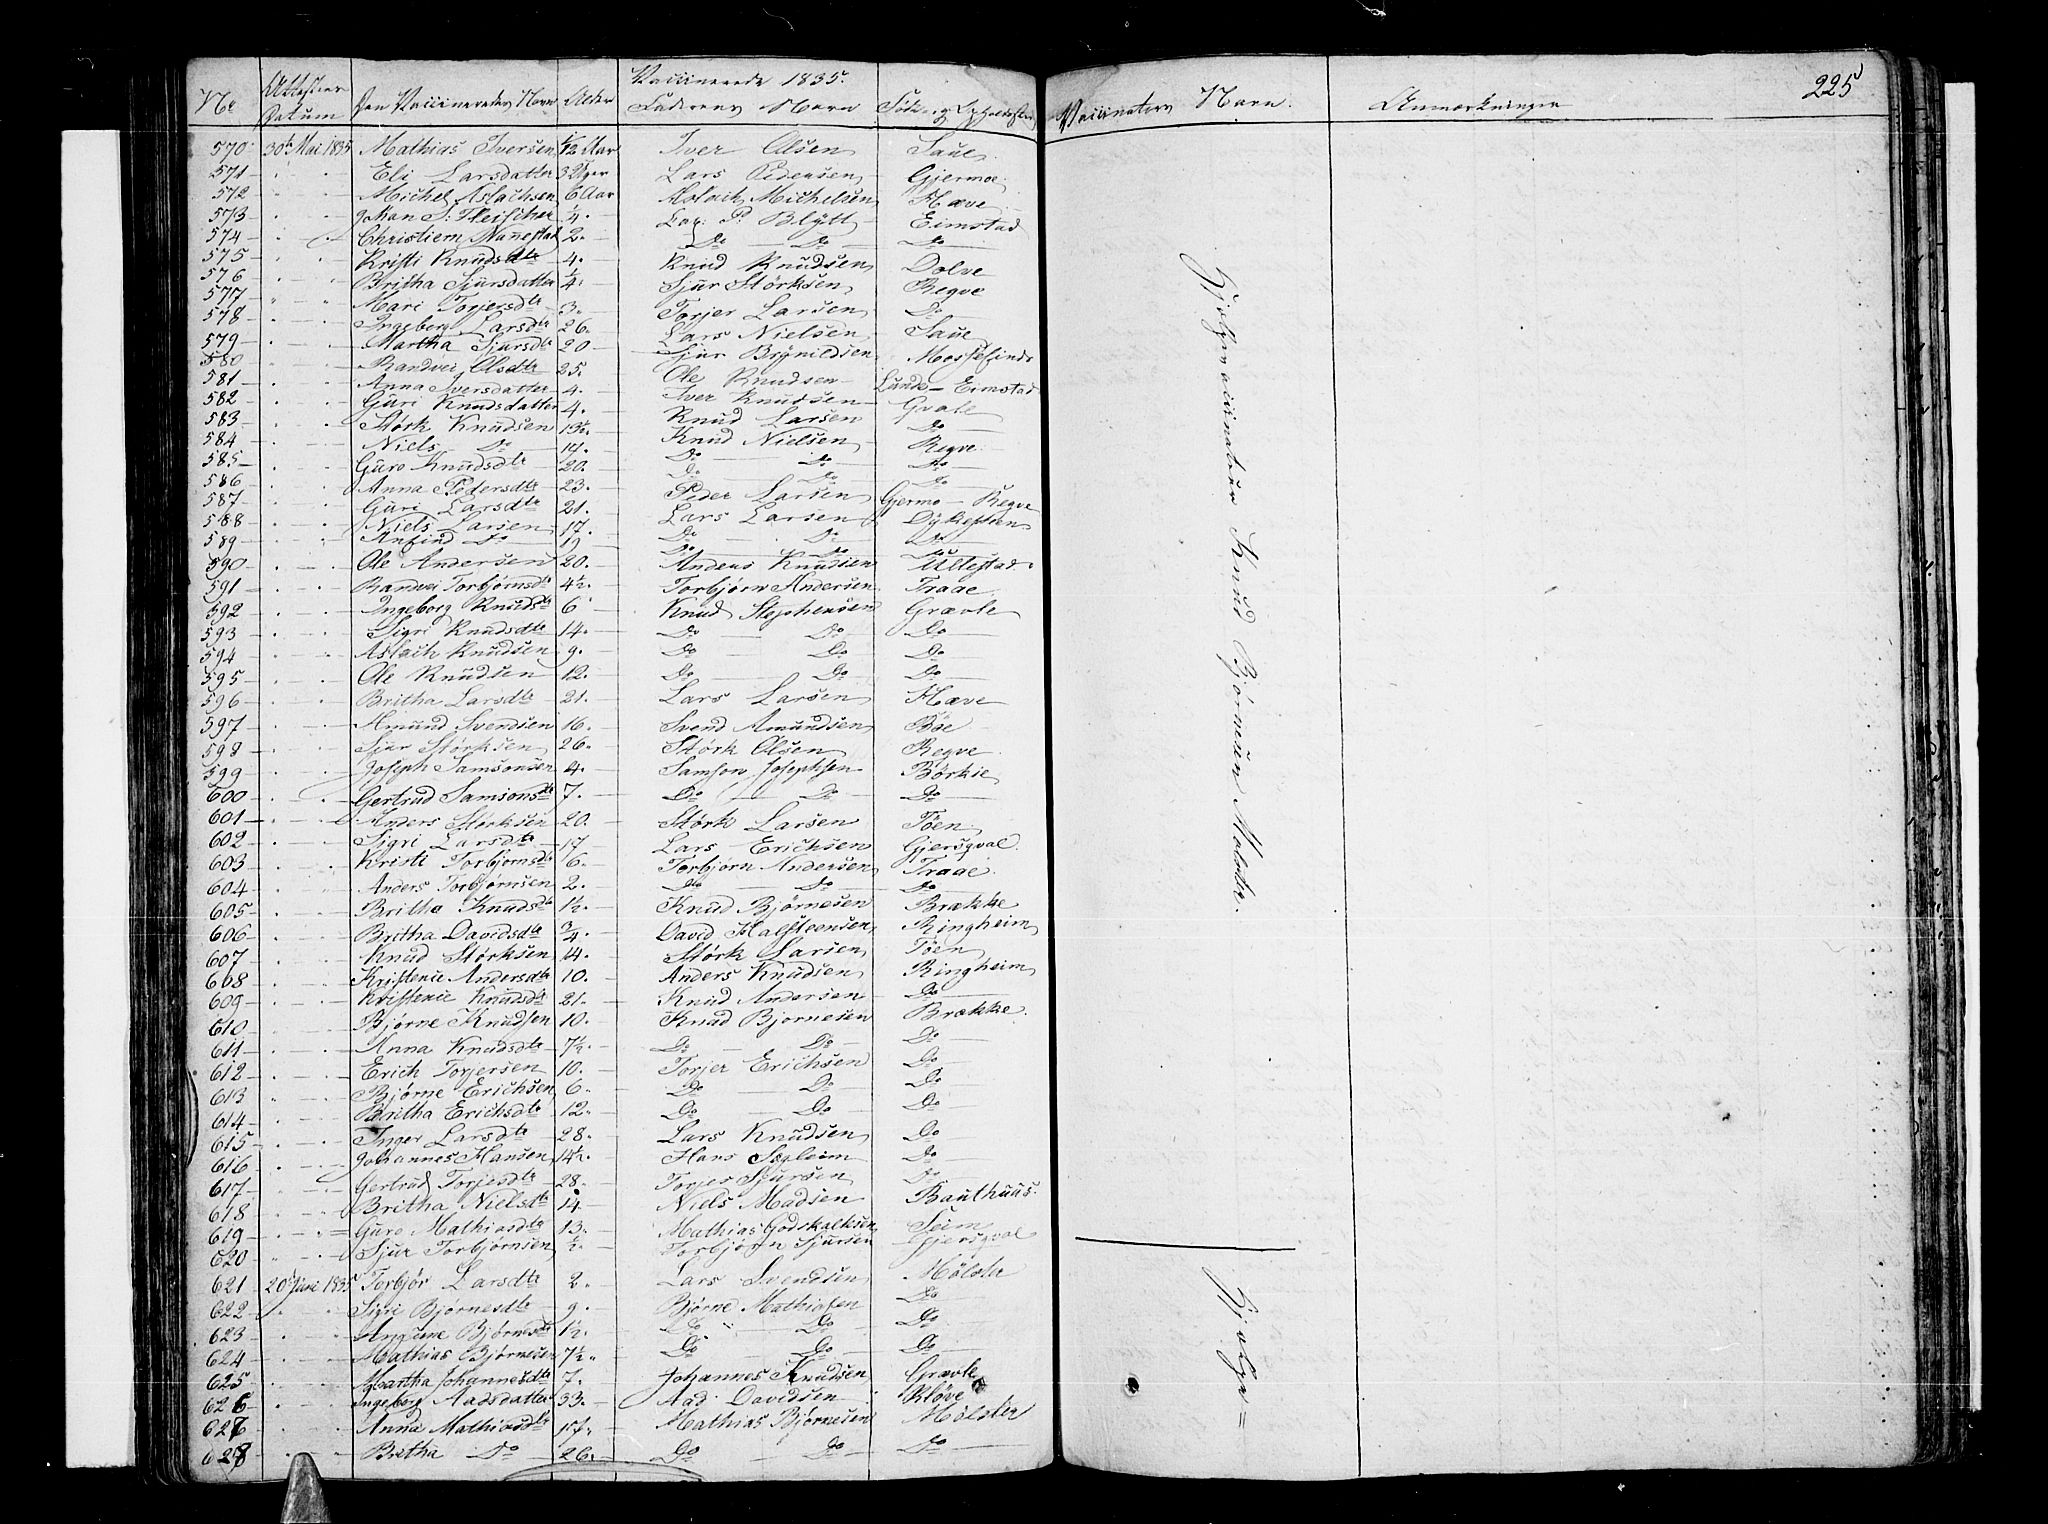 225
Vaccinerede 1835.
No Attestens Datum Den Vaccineredes Navn Alder Faderens Navn Føde- og Opholdssted Vaccinators Navn. Anmærkninger
570 30te Mai 1835 Mathias Iversen 1/12 Aar Iver Olsen Saue
571 Eli Larsdatter 3 Uger Lars Pedersen Gjermoe
572 Michel Aslachsen 6 Aar Aslach Michelsen Hæve
573 Johan S. Fleischer 1/4 Cap: P. Blÿtt Eimstad
574 Christiern Nannestad 2. Do Do Do
575 Kristi Knudsdtr 4. Knud Knudsen Dolve
576 Britha Sjursdatter 1/4. Sjur Störksen Regve
577 Mari Torjersdtr 3. Torjer Larsen Do
578 Ingeborg Larsdtr 26. Lars Nielsen Saue
579 Martha Sjursdtr 20 Sjur Brÿnildsen
580 Randvei Olsdtr 25. Ole Knudsen Lunde - Eimstad
581 Anna Iversdatter 4. Iver Knudsen Gvale
582 Guri Knudsdatter 4. Knud Larsen Do
583 Störk Knudsen 13½. Knud Nielsen Regve
584 Niels Do 14. Do Do Do
585 Guro Knudsdtr 20. Do Do Do
586 Anna Pedersdtr 23. Peder Larsen Gjermo - Regve
587 Guri Larsdtr 21. Lars Larsen Dÿkesteen
588 Niels Larsen 17. Do Do Do
589 Anfind Do 19 Do Do Do
590 Ole Andersen 20. Anders Knudsen Ullestad
591 Randvei Torbjørnsdtr 4½. Torbjørn Andersen Traae
592 Ingeborg Knudsdtr 6 Knud Stephensen Grævle
593 Sigri Knudsdtr 14. Do Do Do
594 Aslach Knudsen 9. Do Do Do
595 Ole Knudsen 12. Do Do Do
596 Britha Larsdtr 21. Lars Larsen Hæve
597 Amund Svendsen 16. Svend Amundsen Böe
598 Sjur Störksen 26. Störk Olsen Regve
599 Joseph Samsonsen 4. Samson Josephsen Börkie
600 Gertrud Samsonsdtr 7. Do Do Do
601 Anders Störksen 20. Störk Larsen Töen
602 Sigri Larsdtr 17 Lars Erichsen Gjersqval
603 Kristi Torbjornsdtr 6. Torbjorn Andersen Traae
604 Anders Torbjørnsen 2. Do Do Do
605 Britha Knudsdtr 1½. Knud Bjørnesen Brække
606 Britha Davidsdtr 3/4. David Halfsteensen Ringheim
607 Knud Störksen 4. Störk Larsen Töen
608 Kristence Andersdtr 10. Anders Knudsen Ringheim
609 Kristence Knudsdtr 21. Knud Andersen Do
610 Bjørne Knudsen 10. Knud Bjornesen Brække
611 Anna Knudsdtr 7½. Do Do Do
612 Erich Torjersen 10. Torjer Erichsen Do
613 Bjørne Erichsen 6. Do Do Do
614 Britha Erichsdtr 12. Do Do Do
615 Inger Larsdtr 28. Lars Knudsen Do
616 Johannes Hansen 14½. Hans Do
617 Gertrud Torjesdtr 28. Torjes Sjursen Do
618 Britha Nielsdtr 14. Niels Madsen
619 Guro Mathiasdtr 13. Mathias Godskalksen Seim
620 Sjur Torbjørnsen ½. Torbjørn Sjursen Gjersqval
621 20de Juni 1835 Torbjør Larsdtr 2. Lars Svendsen Mölster
622 Sigri Bjørnesdtr 9. Bjørne Mathiasen Do
623 Bjørnesdtr 1½. Do Do Do
624 Mathias Bjørnesen 7½. Do Do Do
625 Martha Johannesdtr 7. Johannes Knudsen Grævle
626 Ingeborg Aadsdatter 33. Aad Davidsen Klöve
627 Anna Mathiasdtr 17. Mathias Bjørnesen Mölster
628 Britha Do 26. Do Do Do
Hjelpevaccinateur Knud Bjørnesen Mølster.